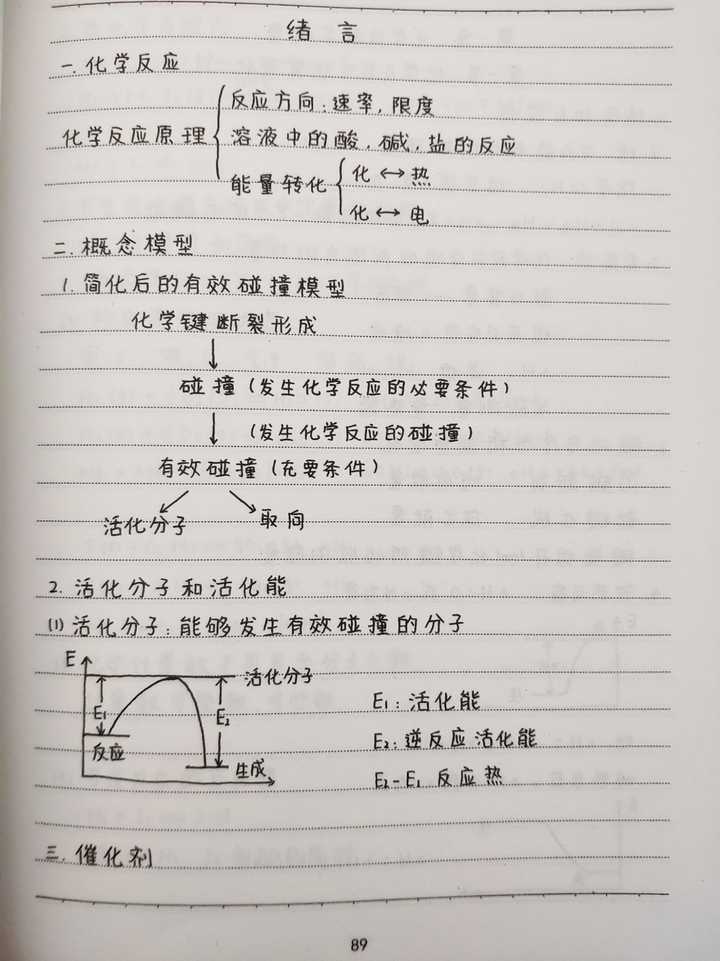 绪言
一.化学反应
化学反应原理
反应方向:速率,限度
溶液中的酸,碱,盐的反应
能量转化
化↔热
化↔电
二.概念模型
1.简化后的有效碰撞模型
化学键断裂形成
碰撞(发生化学反应的必要条件)
(发生化学反应的碰撞)
有效碰撞(充要条件)
活化分子 取向
2.活化分子和活化能
(1)活化分子:能够发生有效碰撞的分子
E
活化分子
E₁ E₂
反应
生成
E₁:活化能
E₂:逆反应活化能
E₂-E₁ 反应热
三.催化剂
89